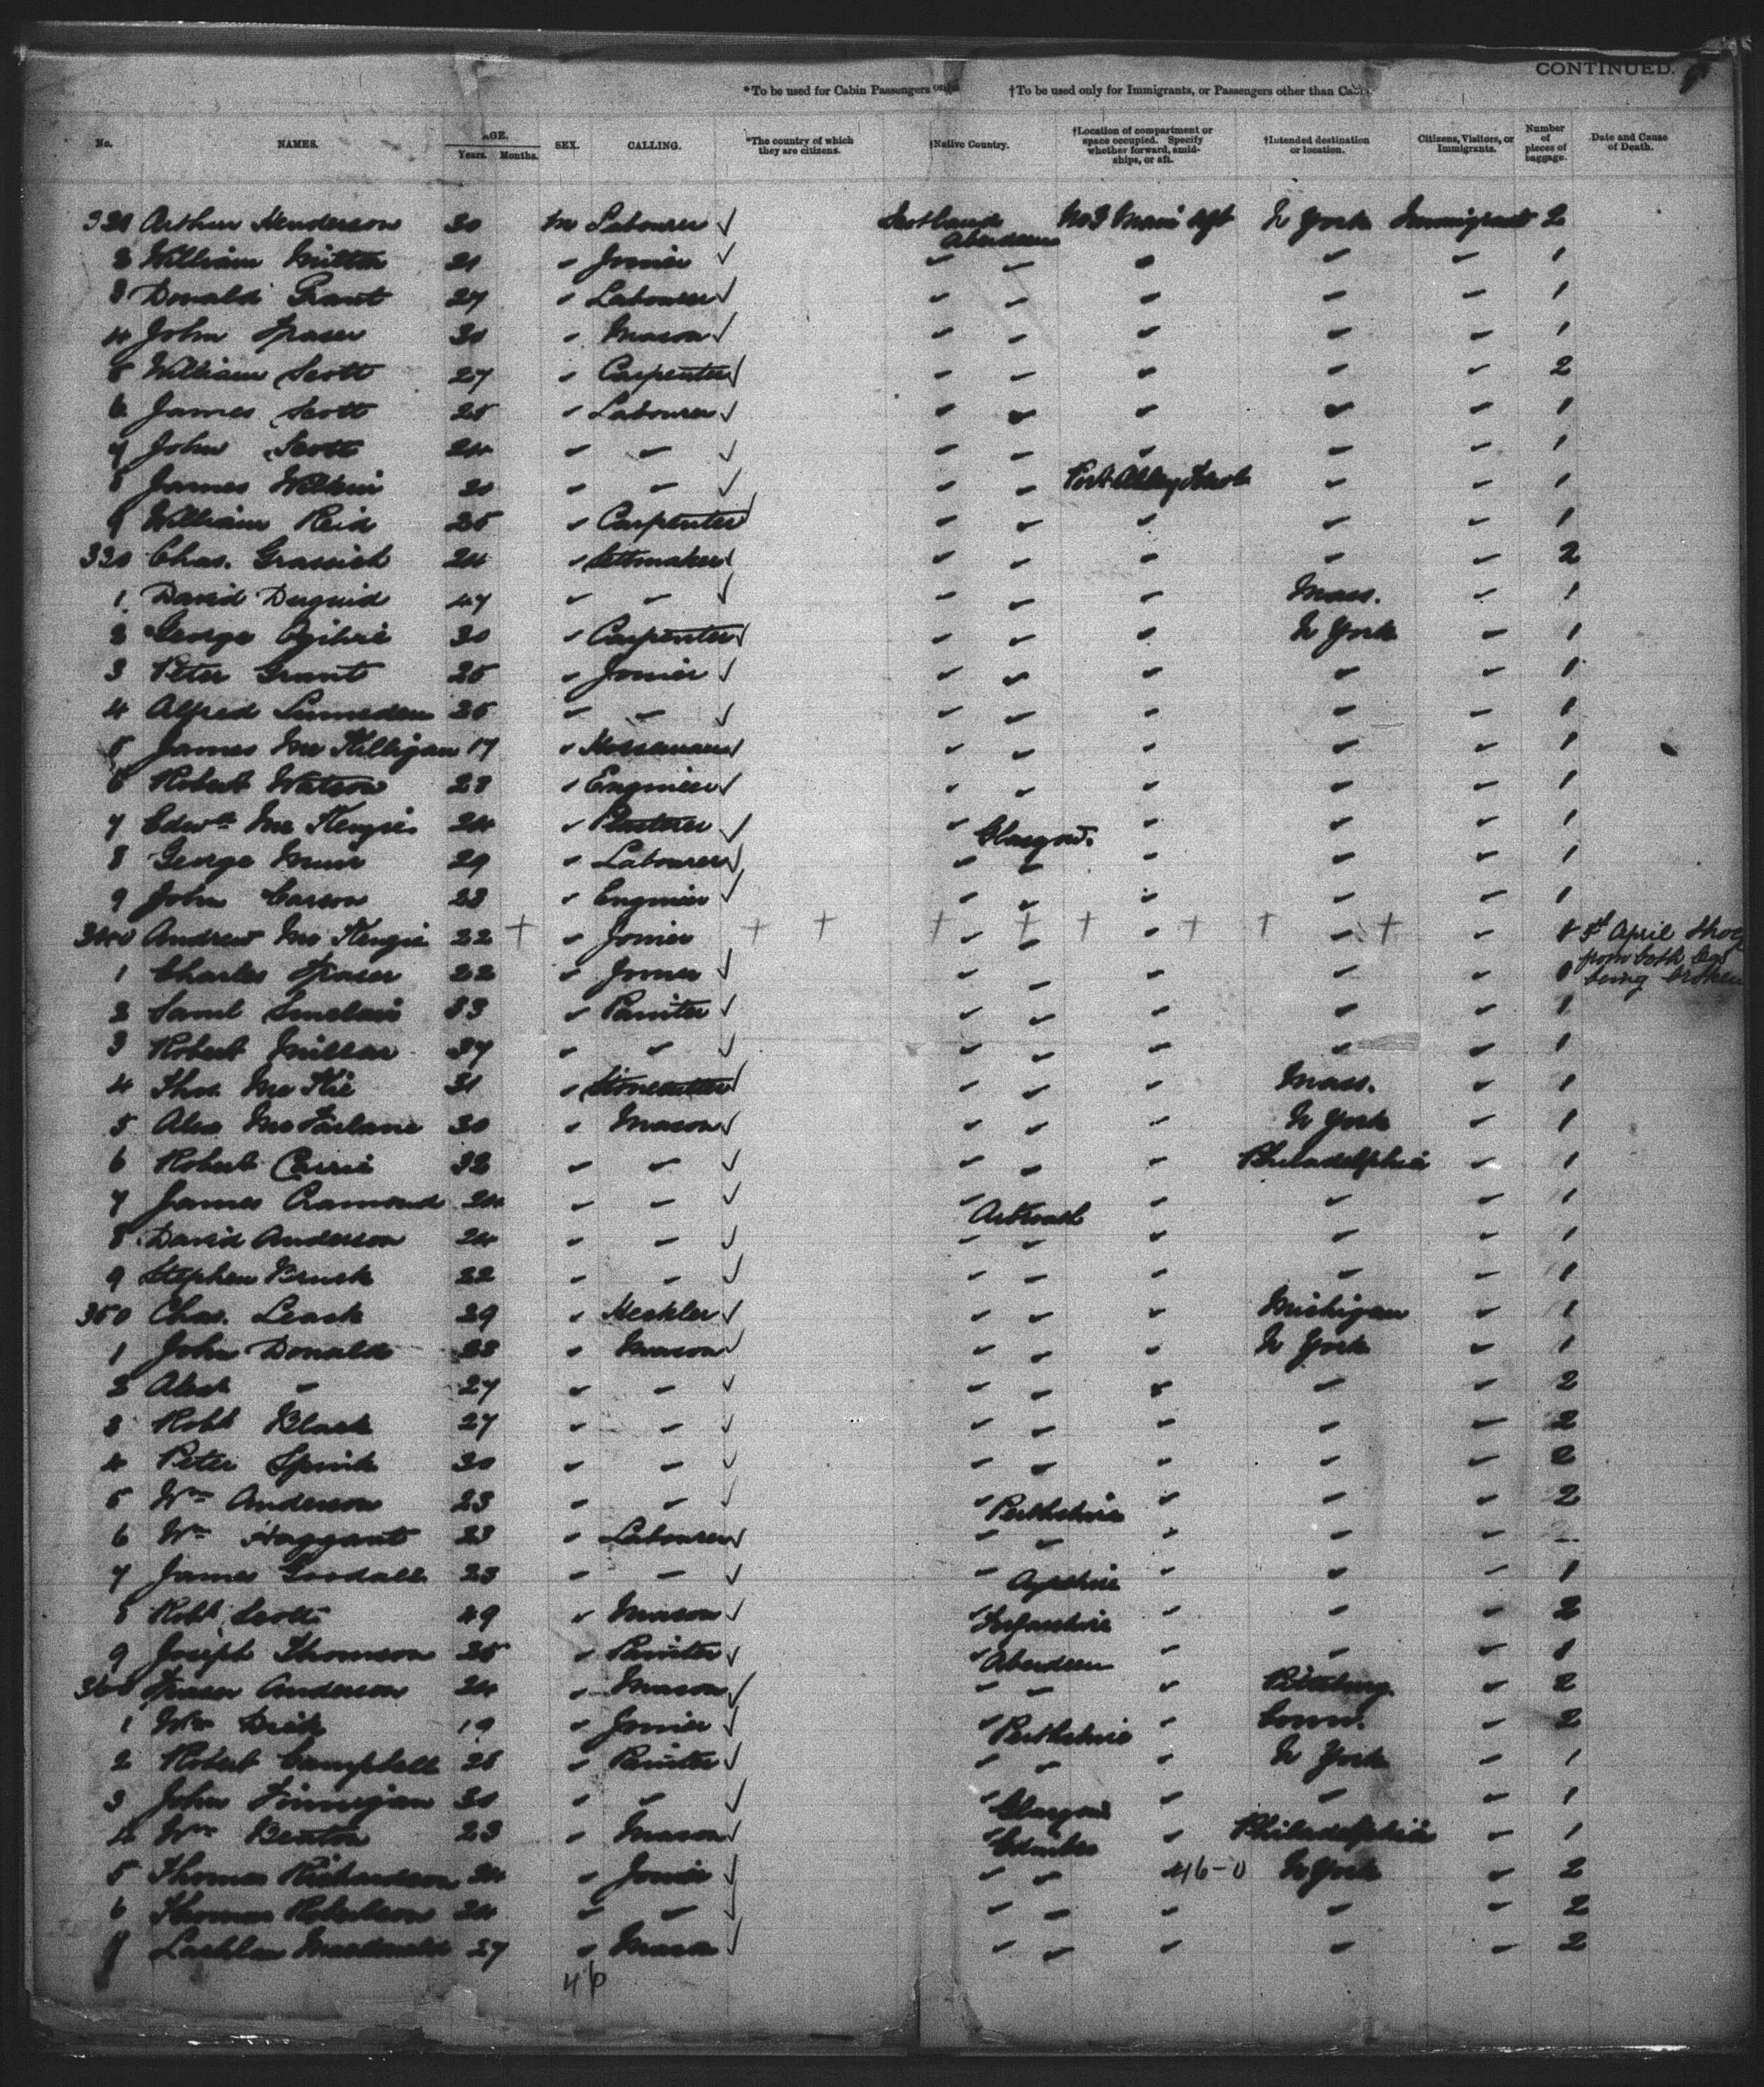 CONTINUED.
*To be used for Cabin Passengers only. †To be used only for Immigrants, or Passengers other than Cabin.
No. NAMES. AGE. Years. Months. SEX. CALLING. *The country of which they are citizens. †Native Country. †Location of compartment or space occupied. Specify whether forward, amidships, or aft. †Intended destination or location. Citizens, Visitors, or Immigrants. Number of pieces of baggage. Date and Cause of Death.
321 Arthur Henderson 30 m Labourer ✓ Scotland Aberdeen No 3 Main Aft N York Immigrant 2
2 William 21 " Joiner ✓ " " " " " 1
3 Donald Grant 27 " Labourer ✓ " " " " " 1
4 John Fraser " Mason ✓ " " " " " 1
5 William Scott 27 " Carpenter ✓ " " " " " 2
6 James Scott 25 " Labourer ✓ " " " " " 1
7 John Scott 24 " " ✓ " " " " " 1
8 James " " ✓ " " Port " " 1
9 William Reid 25 " Carpenter ✓ " " " " " 1
330 Chas. Grassick 24 " ✓ " " " " " 2
1 David Duguid 47 " " ✓ " " " Mass. " 1
2 George Ogilvie 30 " Carpenter ✓ " " " N York " 1
3 Peter Grant " Joiner ✓ " " " " " 1
4 Alfred Lumsden " " ✓ " " " " " 1
5 James Mc Killigan 17 " Horseman ✓ " " " " " 1
6 Robert Watson " Engineer ✓ " " " " " 1
7 Edwd Mc Kenzie 24 " ✓ " Glasgow. " " " 1
8 George Muir 29 " Labourer ✓ " " " " " 1
9 John Carson 23 " Engineer ✓ " " " " " 1
340 Andrew Mc Kenzie 22 " Joiner " " " " " 1 5th April Shock from both legs being broken
1 Charles Fraser 22 " Joiner ✓ " " " " " 1
2 Saml Sinclair 33 " Painter ✓ " " " " " 1
3 Robert Millar 37 " " ✓ " " " " " 1
4 Thos. Mc Kie 31 " Stonecutter ✓ " " " Mass. " 1
5 Alex Mc Farlane 30 " Mason ✓ " " " N York " 1
6 Robert 32 " " ✓ " " " Philadelphia " 1
7 James Cramond 24 " " ✓ " Arbroath " " " 1
8 David Anderson 24 " " ✓ " " " " " 1
9 Stephen 22 " " ✓ " " " " " 1
350 Chas. Leask 29 " Heckler ✓ " " " Michigan " 1
1 John Donald 23 " Mason ✓ " " " N York " 1
2 " 27 " " ✓ " " " " " 2
3 Robt Black 27 " " ✓ " " " " " 2
4 Peter Spink 30 " " ✓ " " " " " 2
5 Wm Anderson 23 " " ✓ " Perthshire " " " 2
6 Wm Haggart 23 " Labourer ✓ " " " " "
7 James Goodall 23 " " ✓ " Ayrshire " " " 1
8 Robt Scott 49 " Mason ✓ " Forfarshire " " " 2
9 Joseph Thomson " Painter ✓ " Aberdeen " " " 1
360 Fraser Anderson 24 " Mason ✓ " " " Pittsburg. " 2
1 Wm Dick 19 " Joiner ✓ " Perthshire " Conn. " 2
2 Robert Campbell " Painter ✓ " " " N York " 1
3 John Finnegan 30 " " ✓ " Glasgow " " " 1
4 Wm 23 " Mason ✓ " " Philadelphia " 1
5 Thomas Richardson 24 " Joiner ✓ " " 46-0 N York " 2
6 Thomas Robertson 24 " " ✓ " " " " " 2
Lachlan Macdonald 27 " Mason ✓ " " " " " 2
46